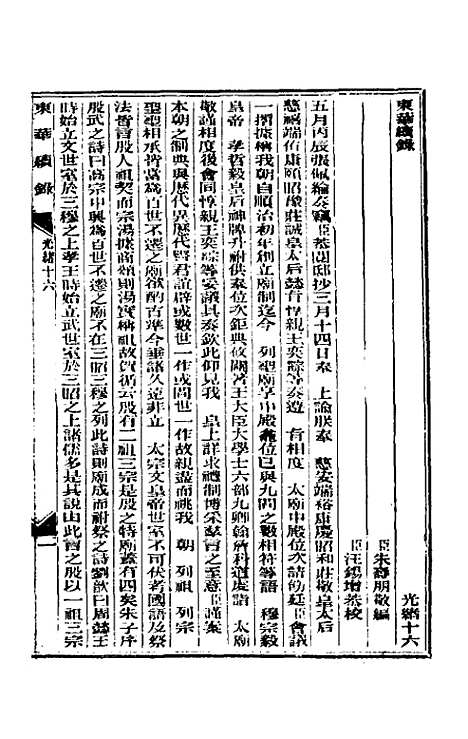 東華續錄
光緒十六
臣朱壽朋敬編
臣汪錫增恭校
五月丙辰張佩綸奏竊臣恭閱邸抄三月十四日奉 上諭朕奉 慈安端裕康慶昭和莊敬皇太后
慈禧端佑康頤昭豫莊誠皇太后懿旨惇親王奕誴等奏遵 旨相度 太廟中殿位次請飭廷臣會議
一摺據稱我朝自順治初年創立廟制迄今 列聖廟享中殿龕位已與九間之數相符等語 穆宗毅
皇帝 孝哲毅皇后神牌升祔供奉位次鉅典攸關著王大臣大學士六部九卿翰詹科道度諸 太廟
敬謹相度後會同惇親王奕誴等妥議具奏欽此仰見我 皇上詳求禮制博采羣言之至意臣謹案
本朝之制典與歷代異歷代賢君誼辟或數世一作或間世一作故親盡而祧我 朝 列祖 列宗
聖聖相承皆當為百世不遷之廟欲酌古準今垂諸久遠非立 太宗文皇帝世室不可伏考國語及祭
法皆言殷人祖契而宗湯據商頌則湯實稱祖故賀循云殷有二祖三宗是殷之特廟蓋有四矣朱子序
殷武之詩曰高宗中興為百世不遷之廟不在三昭三穆之列此詩則廟成而祔祭之詩劉歆曰周懿王
時始立文世室於三穆之上孝王時始立武世室於三昭之上諸儒多是其說由此言之殷以一祖三宗
東華續錄 光緒十六 一